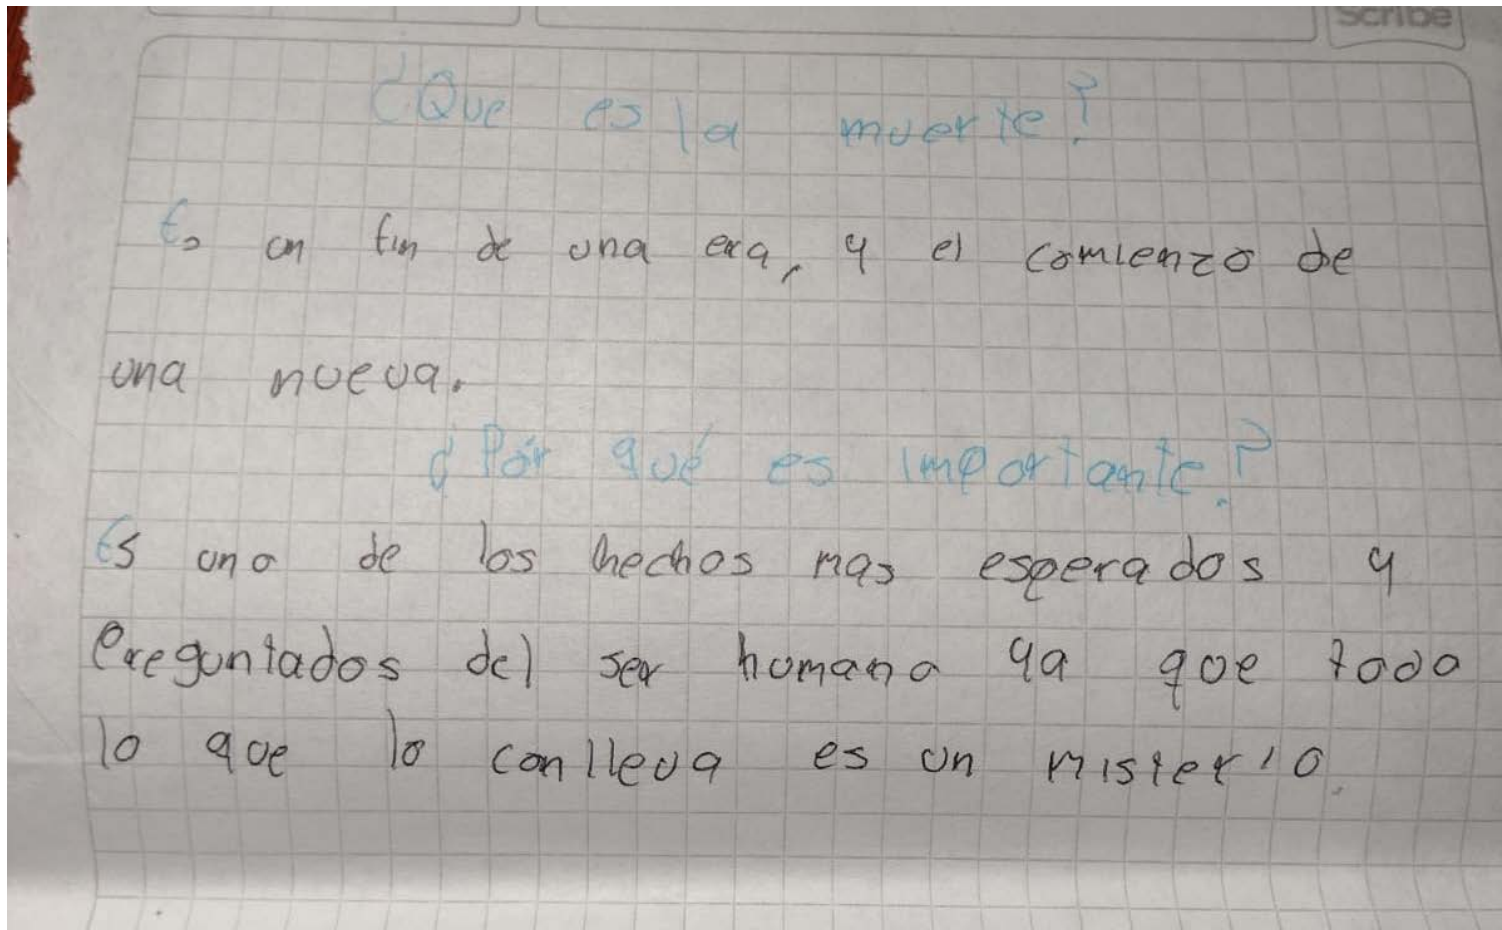 Scribe
¿Que es la muerte?
Es un fin de una era, y el comienzo de
una nueva.
¿Por qué es importante?
Es uno de los hechos mas esperados y
preguntados del ser humano ya que todo
lo que lo conlleva es un misterio.